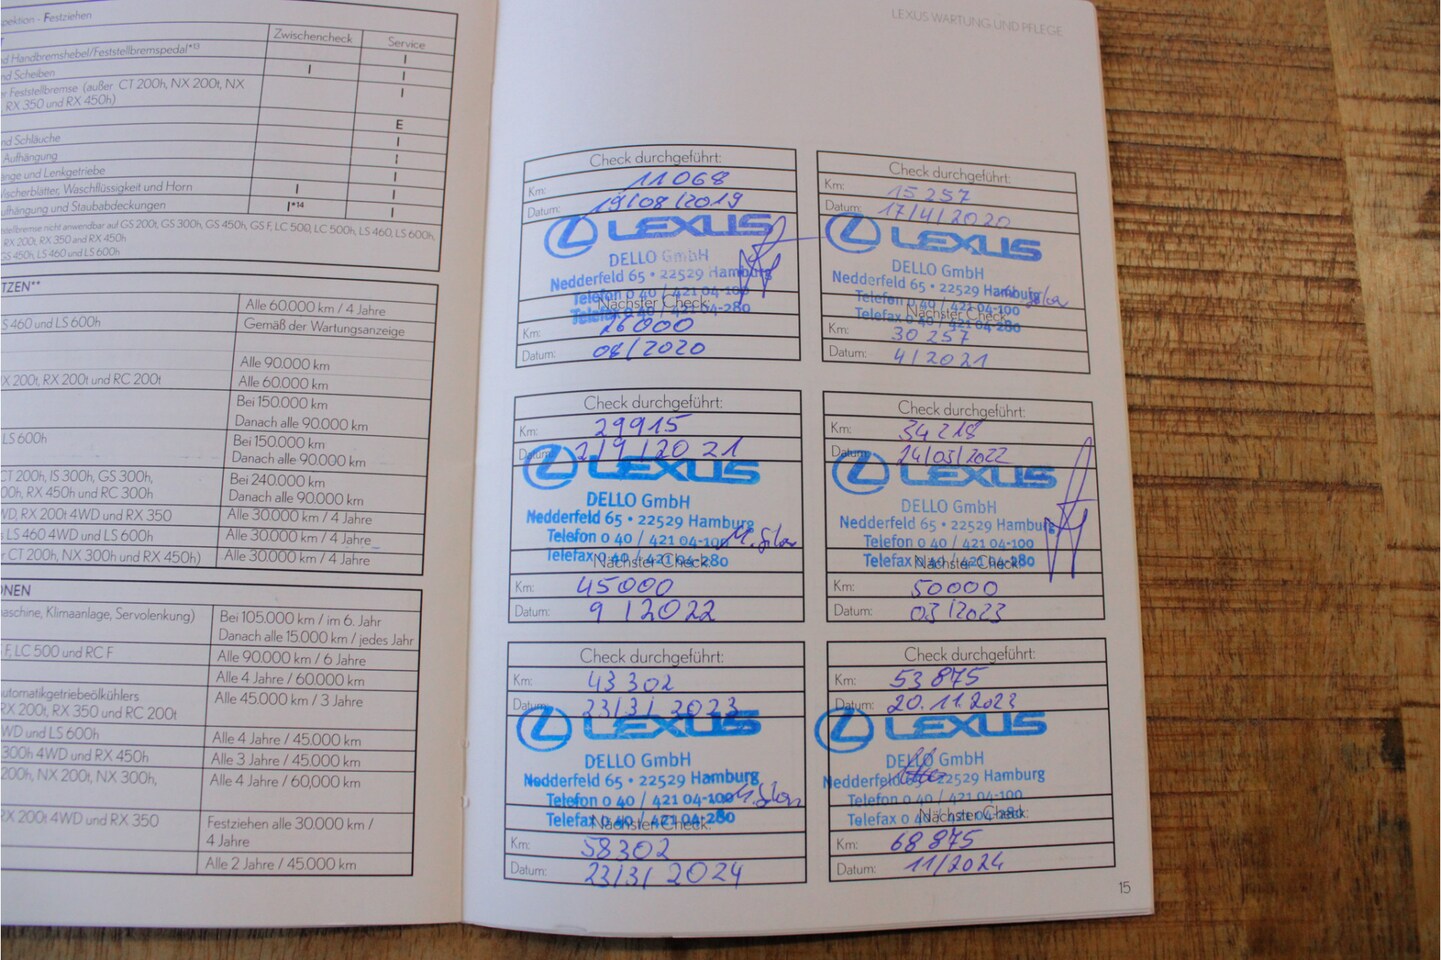 pektion - Festziehen
Zwischencheck
Service
d Handbremshebel/Feststellbremspedal*¹³
I
nd Scheiben
I
I
r Feststellbremse (außer CT 200h, NX 200t, NX
RX 350 und RX 450h)
I
E
nd Schläuche
I
Aufhängung
I
änge und Lenkgetriebe
I
ischerblätter, Waschflüssigkeit und Horn
I
I
ufhängung und Staubabdeckungen
I*¹⁴
I
stellbremse nicht anwendbar auf GS 200t, GS 300h, GS 450h, GS F, LC 500, LC 500h, LS 460, LS 600h,
RX 200t, RX 350 and RX 450h
GS 450h, LS 460 und LS 600h
TZEN**
Alle 60.000 km / 4 Jahre
S 460 und LS 600h
Gemäß der Wartungsanzeige
Alle 90.000 km
X 200t, RX 200t und RC 200t
Alle 60.000 km
Bei 150.000 km
Danach alle 90.000 km
LS 600h
Bei 150.000 km
Danach alle 90.000 km
CT 200h, IS 300h, GS 300h,
00h, RX 450h und RC 300h
Bei 240.000 km
Danach alle 90.000 km
WD, RX 200t 4WD und RX 350
Alle 30.000 km / 4 Jahre
LS 460 4WD und LS 600h
Alle 30.000 km / 4 Jahre
r CT 200h, NX 300h und RX 450h)
Alle 30.000 km / 4 Jahre
ONEN
maschine, Klimaanlage, Servolenkung)
Bei 105.000 km / im 6. Jahr
Danach alle 15.000 km / jedes Jahr
F, LC 500 und RC F
Alle 90.000 km / 6 Jahre
Alle 4 Jahre / 60.000 km
utomatikgetriebeölkühlers
RX 200t, RX 350 und RC 200t
Alle 45.000 km / 3 Jahre
WD und LS 600h
Alle 4 Jahre / 45.000 km
300h 4WD und RX 450h
Alle 3 Jahre / 45.000 km
200h, NX 200t, NX 300h,
Alle 4 Jahre / 60,000 km
RX 200t 4WD und RX 350
Festziehen alle 30.000 km /
4 Jahre
Alle 2 Jahre / 45.000 km
LEXUS WARTUNG UND PFLEGE
Check durchgeführt:
Km: 11068
Datum: 19/08/2019
LEXUS
DELLO GmbH
Nedderfeld 65 • 22529 Hamburg
Telefon 0 40 / 421 04-100
Nächster Check:
Telefax 0 40 / 421 04-280
Km: 26000
Datum: 08/2020
Check durchgeführt:
Km: 15 257
Datum: 17/4/2020
LEXUS
DELLO GmbH
Nedderfeld 65 • 22529 Hamburg
Telefon 0 40 / 421 04-100
Nächster Check:
Telefax 0 40 / 421 04-280
Km: 30 257
Datum: 4/2021
Check durchgeführt:
Km: 29915
Datum: 2/9/2021
LEXUS
DELLO GmbH
Nedderfeld 65 • 22529 Hamburg
Telefon 0 40 / 421 04-100
Telefax 0 40 / 421 04-280
Nächster Check:
Km: 45000
Datum: 9/2022
Check durchgeführt:
Km: 34 218
Datum: 14/03/2022
LEXUS
DELLO GmbH
Nedderfeld 65 • 22529 Hamburg
Telefon 0 40 / 421 04-100
Telefax 0 40 / 421 04-280
Nächster Check:
Km: 50000
Datum: 03/2023
Check durchgeführt:
Km: 43 302
Datum: 23/3/2023
LEXUS
DELLO GmbH
Nedderfeld 65 • 22529 Hamburg
Telefon 0 40 / 421 04-100
Telefax 0 40 / 421 04-280
Nächster Check:
Km: 58302
Datum: 23/3/2024
Check durchgeführt:
Km: 53 875
Datum: 20.11.2023
LEXUS
DELLO GmbH
Nedderfeld 65 • 22529 Hamburg
Telefon 0 40 / 421 04-100
Telefax 0 40 / 421 04-280
Nächster Check:
Km: 68 875
Datum: 11/2024
15